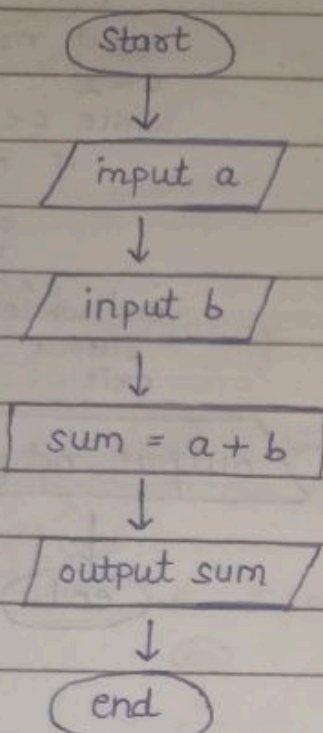 Start
input a
input b
sum = a + b
output sum
end